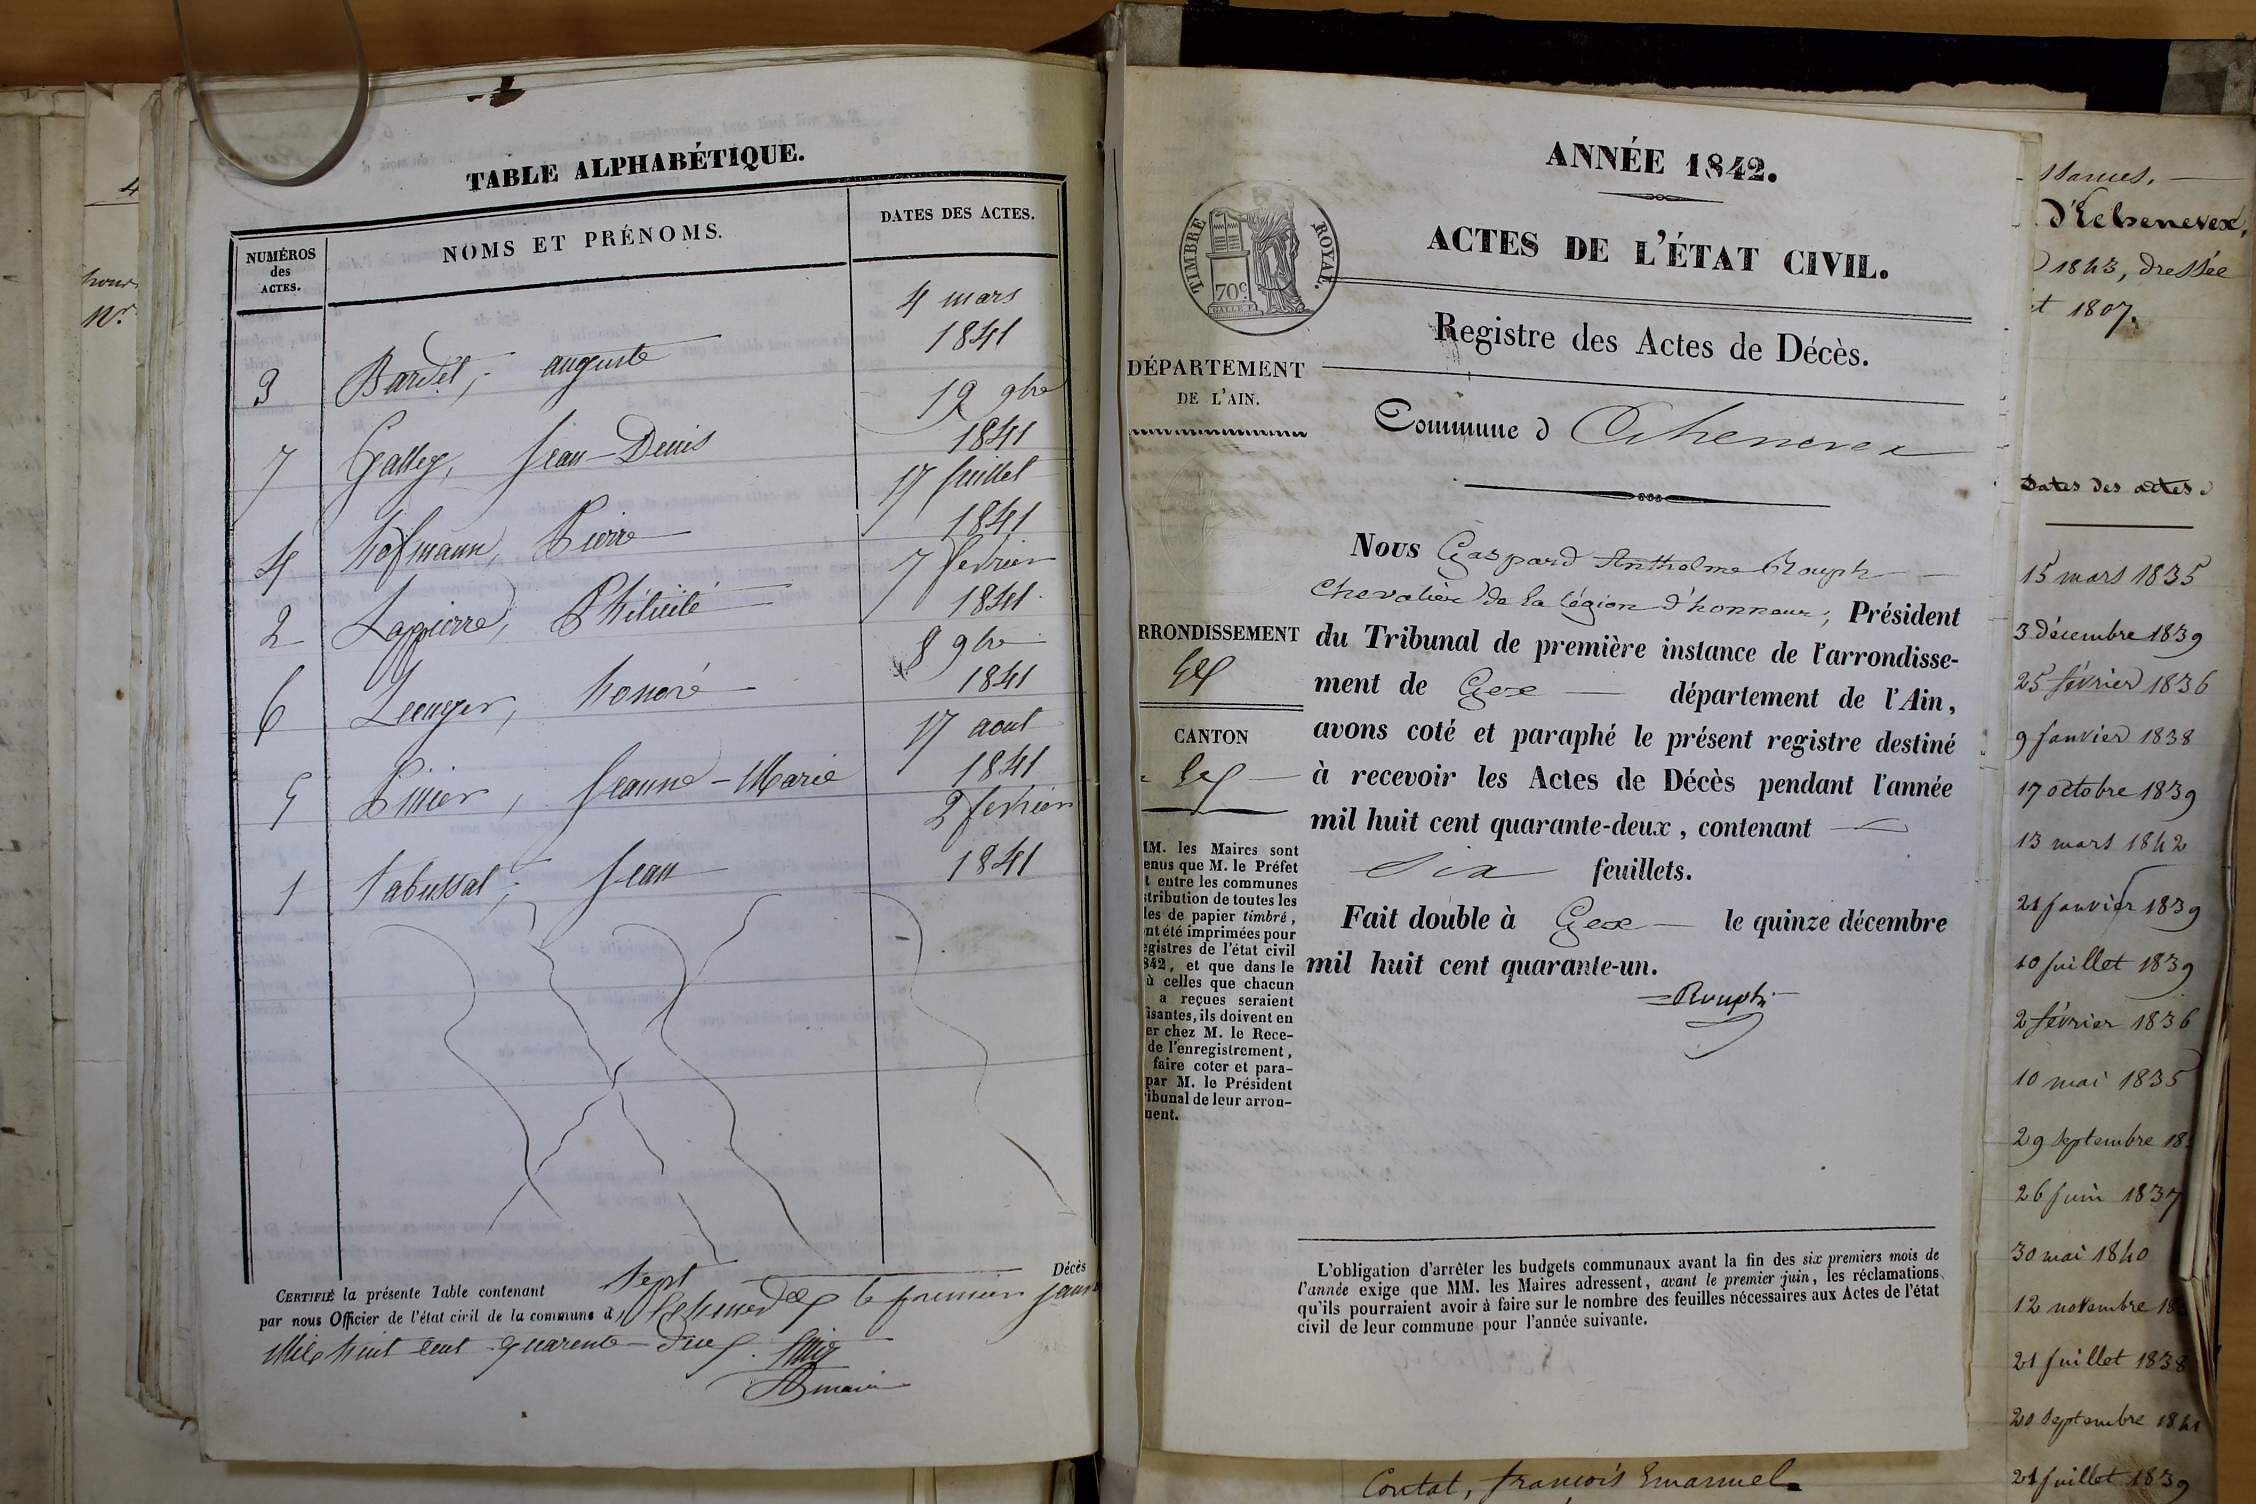 TABLE ALPHABÉTIQUE.
NUMÉROS
des
ACTES.
NOMS ET PRÉNOMS.
DATES DES ACTES.
3 Bardet, auguste 4 mars
1841
7 Gallay, Jean-Denis 12 9bre
1841
4 hofmann, Pierre 17 juillet
1841
2 Lapierre, Philicité 7 fevrier
1841
6 honoré 8 9bre
1841
5 Jeanne-Marie 17 aout
1841
1 tabussat, Jean 2 fevrier
1841
CERTIFIÉ la présente Table contenant sept Décès
par nous Officier de l'état civil de la commune d' le premier janv
Mil huit cent quarente-deux.
ANNÉE 1842.
ACTES DE L'ÉTAT CIVIL.
TIMBRE ROYAL.
70c
Registre des Actes de Décès.
DÉPARTEMENT
DE L'AIN.
Commune d Echenevex
Nous Gaspard Anthelme Rouph
chevalier de la légion d'honneur, Président
du Tribunal de première instance de l'arrondisse-
ment de Gex département de l'Ain,
avons coté et paraphé le présent registre destiné
à recevoir les Actes de Décès pendant l'année
mil huit cent quarante-deux, contenant
six feuillets.
Fait double à Gex le quinze décembre
mil huit cent quarante-un.
Rouph
RRONDISSEMENT
Gex
CANTON
Gex
MM. les Maires sont
enus que M. le Préfet
t entre les communes
stribution de toutes les
les de papier timbré,
nt été imprimées pour
egistres de l'état civil
842, et que dans le
ù celles que chacun
a reçues seraient
isantes, ils doivent en
er chez M. le Rece-
de l'enregistrement,
faire coter et para-
par M. le Président
ribunal de leur arron-
ment.
L'obligation d'arrêter les budgets communaux avant la fin des six premiers mois de
l'année exige que MM. les Maires adressent, avant le premier juin, les réclamations
qu'ils pourraient avoir à faire sur le nombre des feuilles nécessaires aux Actes de l'état
civil de leur commune pour l'année suivante.
ssances.
d'Echenevex,
1843, dressée
et 1807.
Dates des actes.
15 mars 1835
3 décembre 1839
25 février 1836
9 janvier 1838
17 octobre 1839
13 mars 1842
21 janvier 1839
10 juillet 1839
2 février 1836
10 mai 1835
29 septembre 18
26 juin 1837
30 mai 1840
12 novembre 18
21 juillet 1838
20 septembre 1841
21 juillet 1839
Contat, françois Emanuel